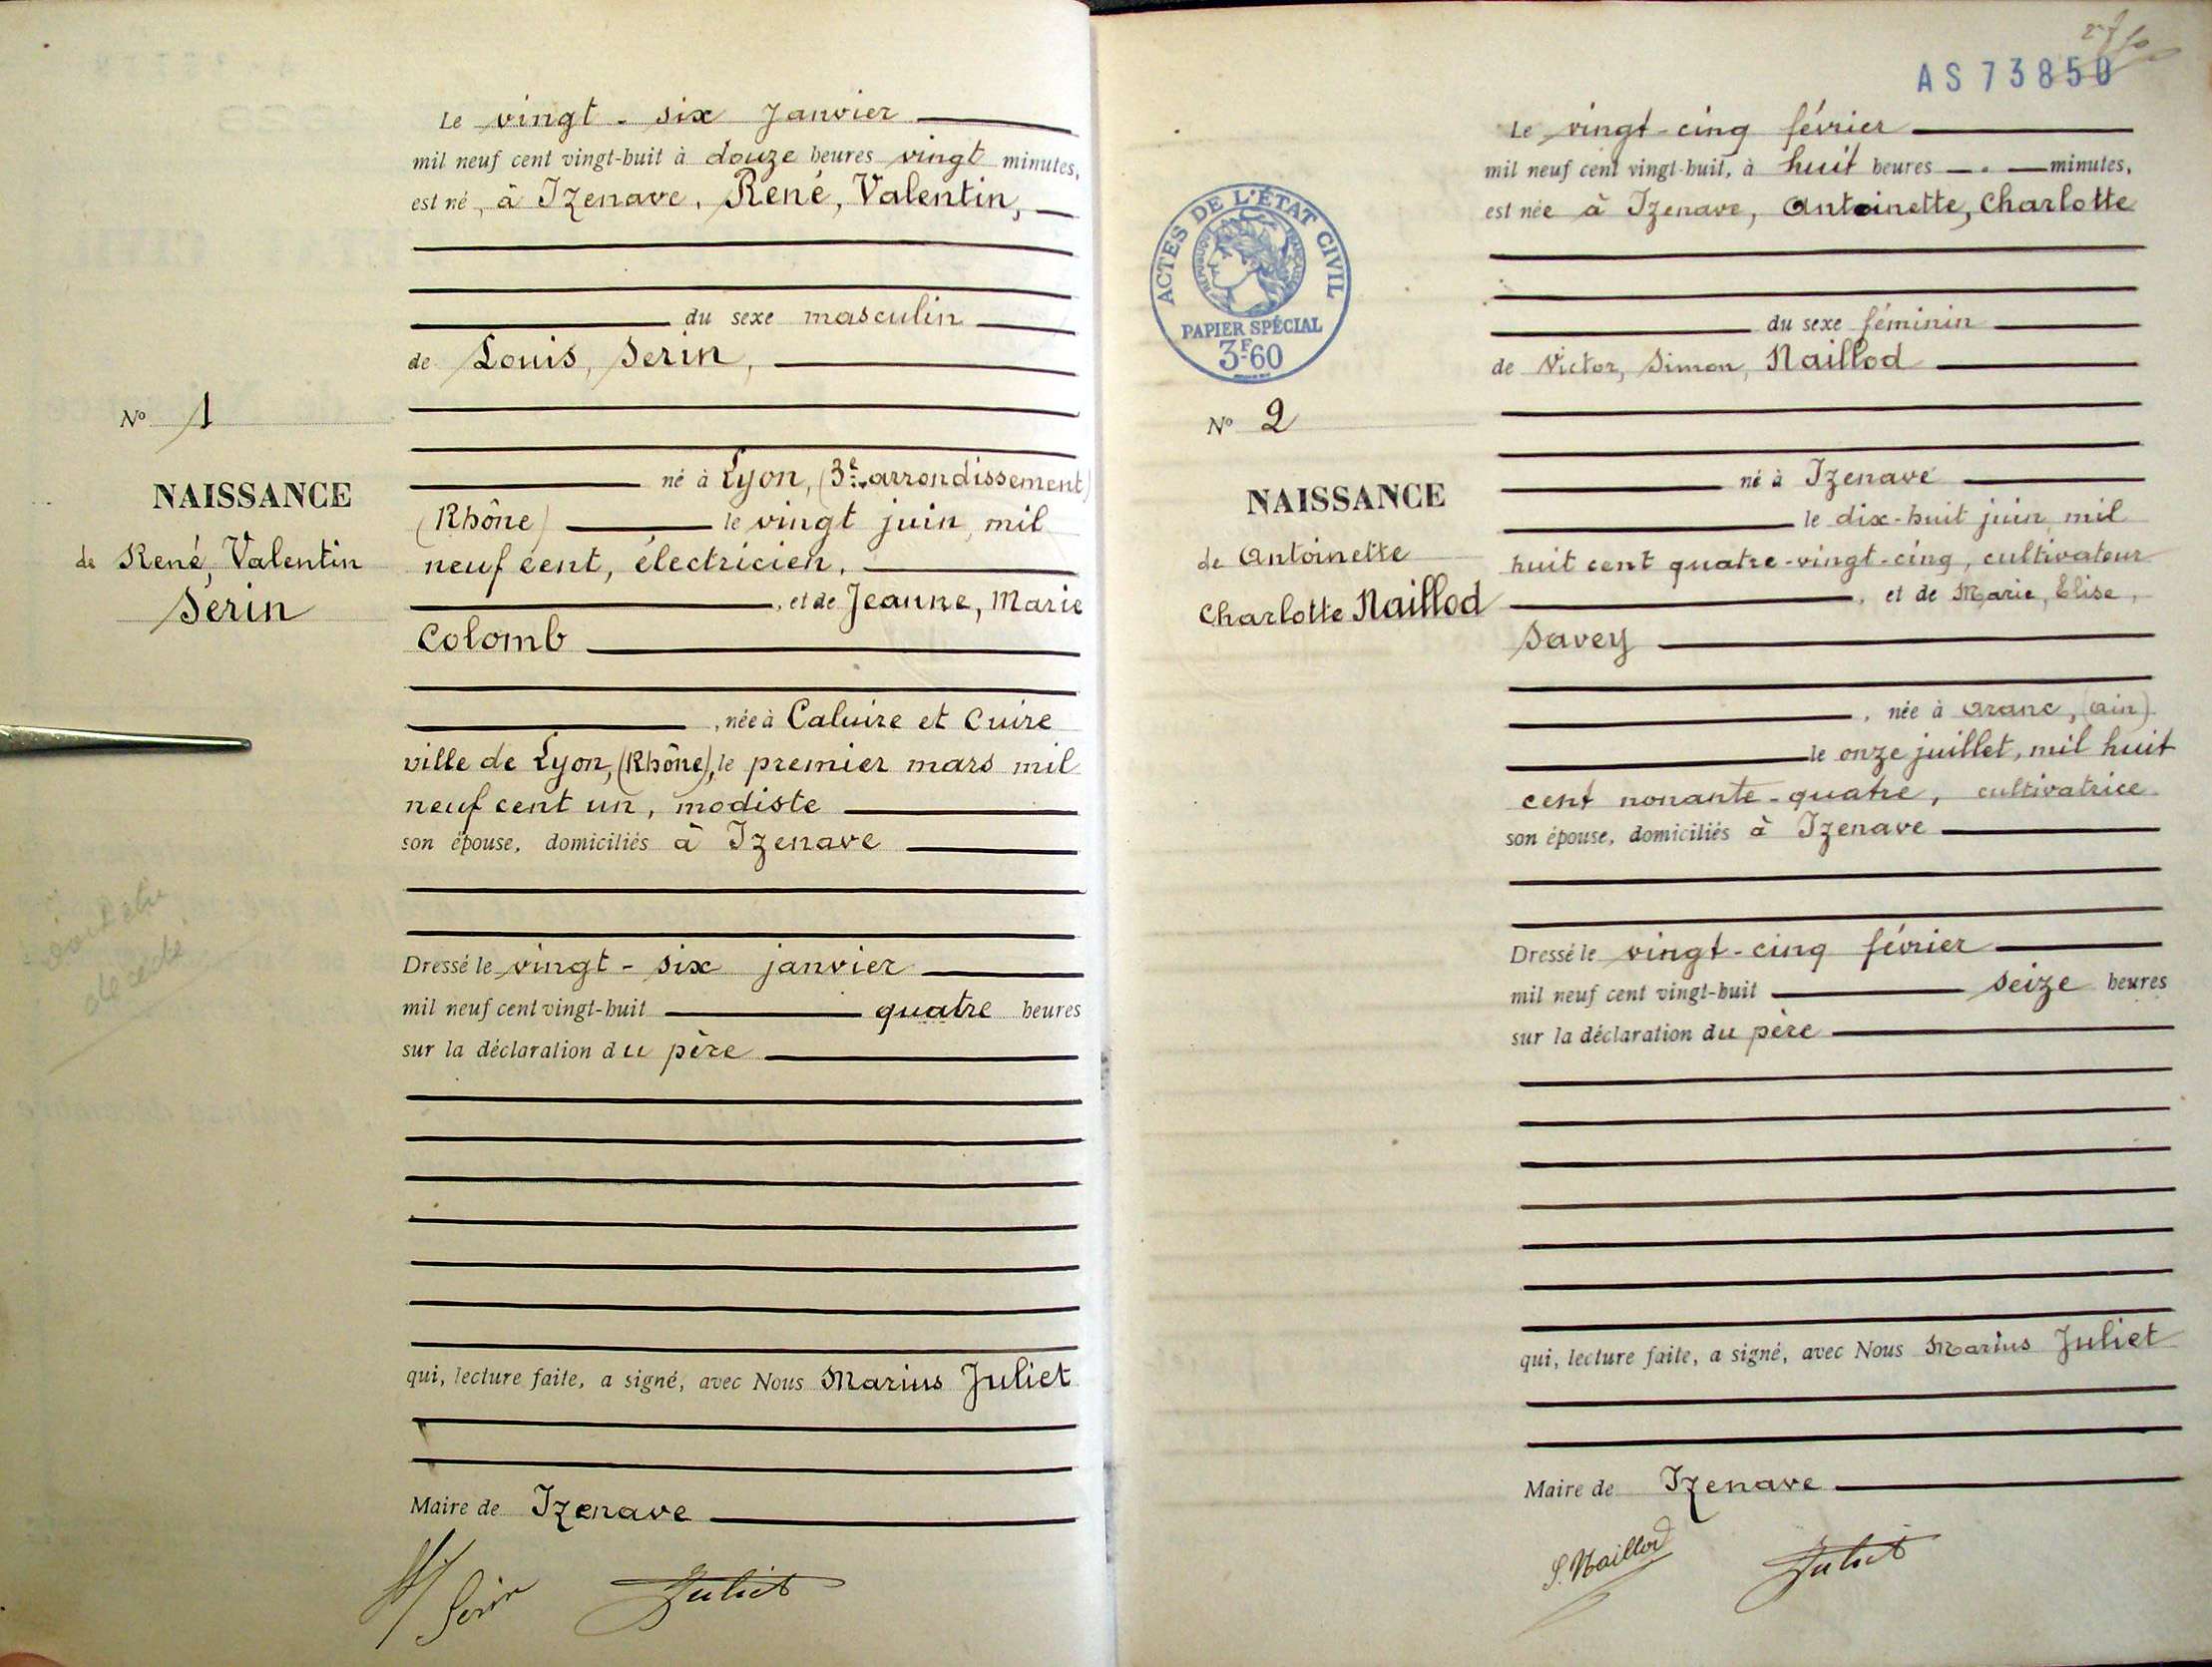 Le vingt-six Janvier
mil neuf cent vingt-huit à douze heures vingt minutes,
est né, à Izenave, René, Valentin,
du sexe masculin
de Louis, Serin,
No 1
né à Lyon, (3e arrondissement)
NAISSANCE
(Rhône) le vingt juin, mil
de René, Valentin
neuf cent, électricien,
Serin
, et de Jeanne, Marie
Colomb
, née à Caluire et Cuire
ville de Lyon, (Rhône), le premier mars mil
neuf cent un, modiste
son épouse, domiciliés à Izenave
décédé
Dressé le vingt-six janvier
mil neuf cent vingt-huit quatre heures
sur la déclaration du père
qui, lecture faite, a signé, avec Nous Marius Juliet
Maire de Izenave
Serin Juliet
AS 73850
Le vingt-cinq février
mil neuf cent vingt-huit, à huit heures — . — minutes,
est née à Izenave, Antoinette, Charlotte
ACTES DE L'ÉTAT CIVIL
RÉPUBLIQUE FRANÇAISE
PAPIER SPÉCIAL
3F60
du sexe féminin
de Victor, Simon, Naillod
No 2
né à Izenave
NAISSANCE
le dix-huit juin mil
de Antoinette
huit cent quatre-vingt-cinq, cultivateur
Charlotte Naillod
, et de Marie, Elise,
Savey
, née à Aranc, (Ain)
le onze juillet, mil huit
cent nonante-quatre, cultivatrice
son épouse, domiciliés à Izenave
Dressé le vingt-cinq février
mil neuf cent vingt-huit seize heures
sur la déclaration du père
qui, lecture faite, a signé, avec Nous Marius Juliet
Maire de Izenave
S. Naillod Juliet